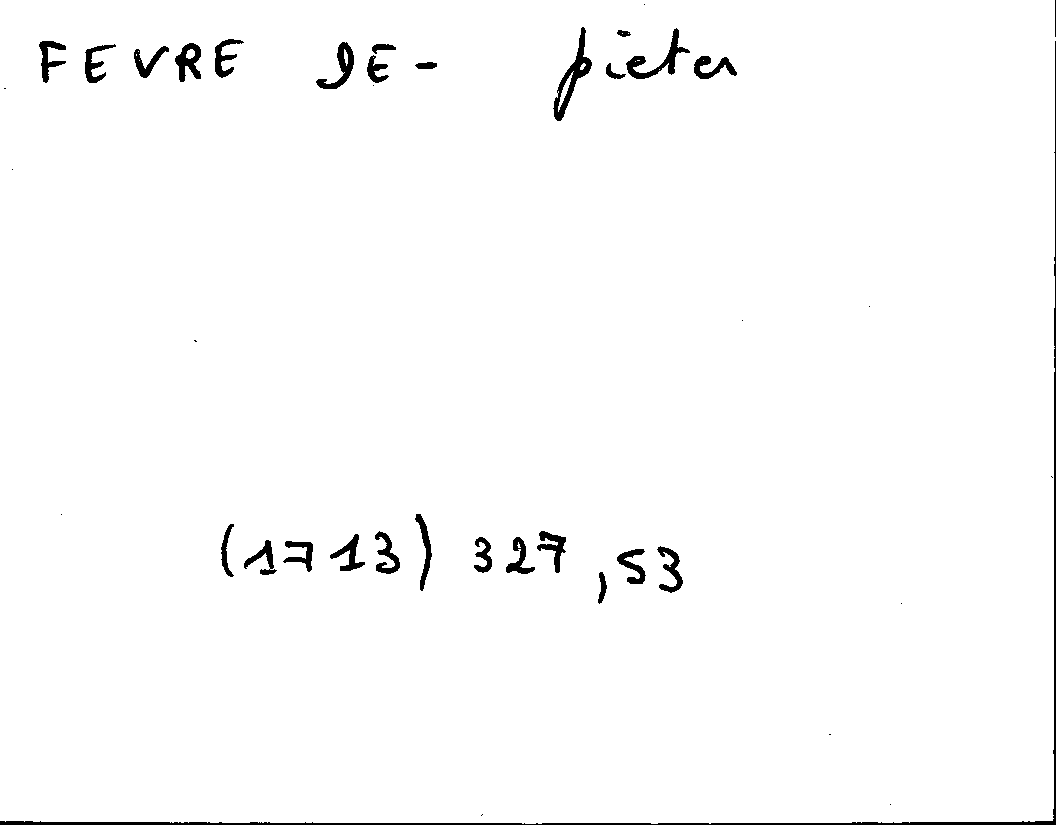 FEVRE DE- pieter
(1713) 327, 53